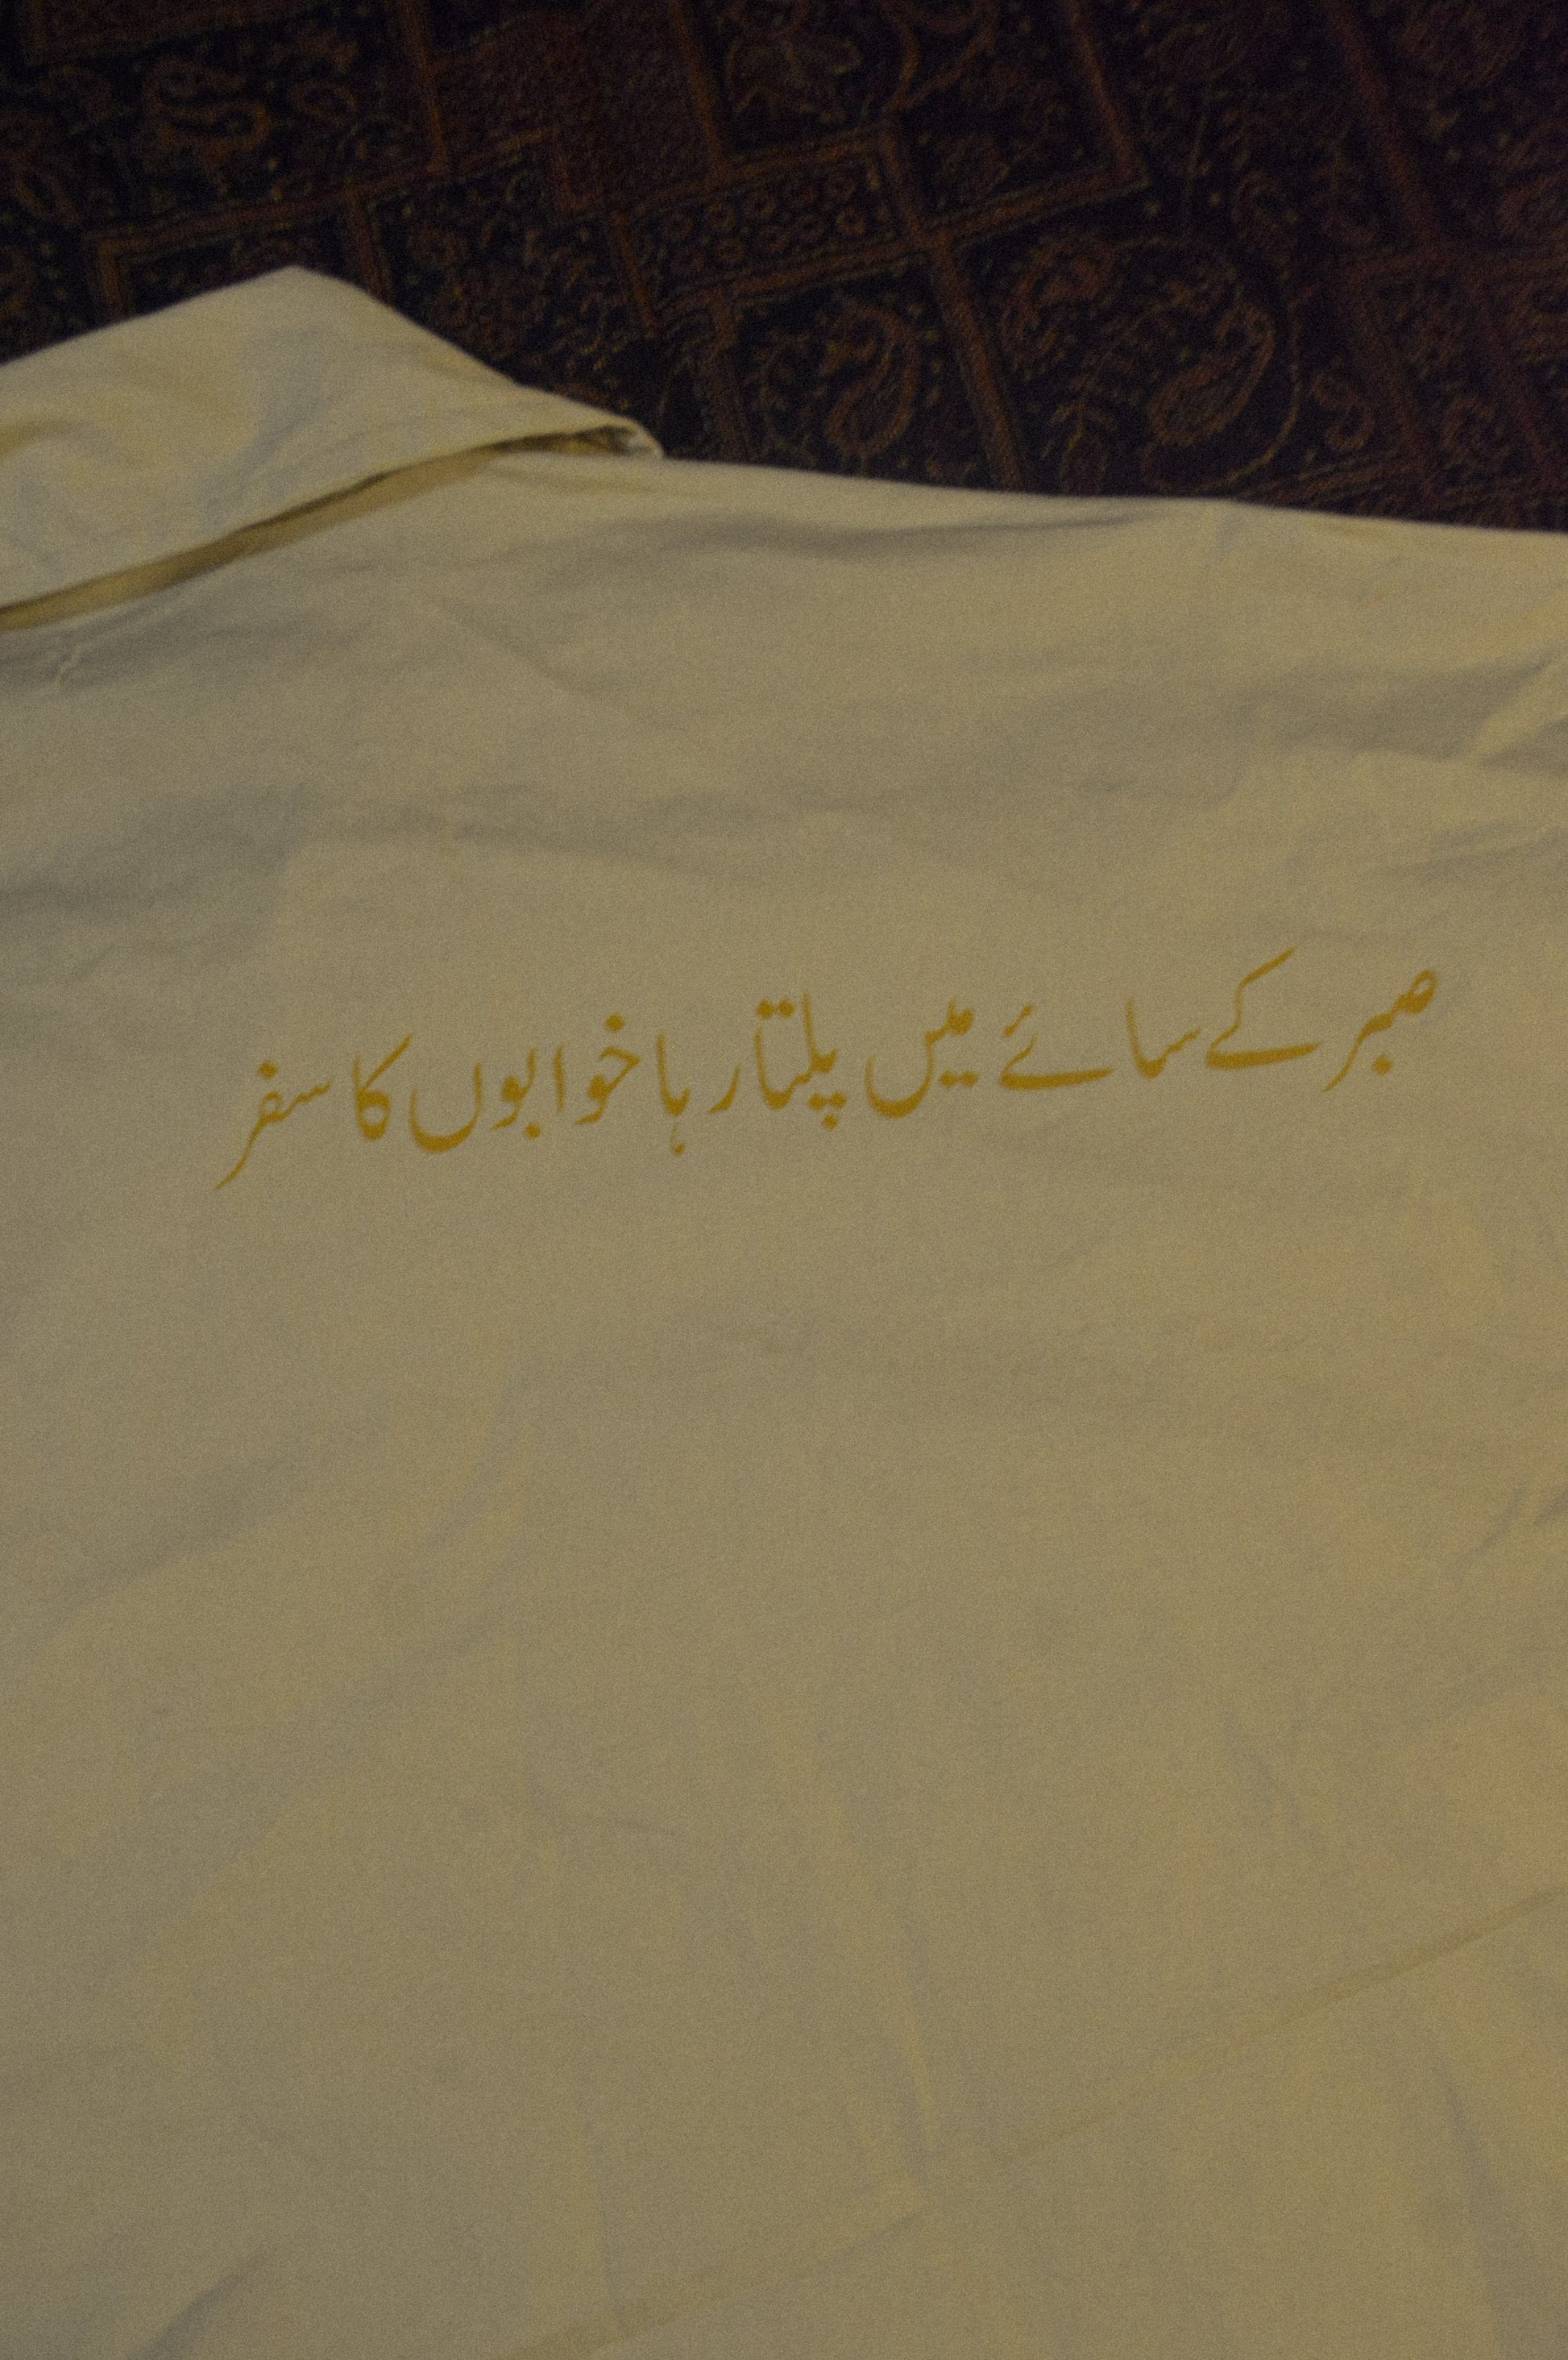 صبر کے سائے میں پلتا رہا خوابوں کا سفر